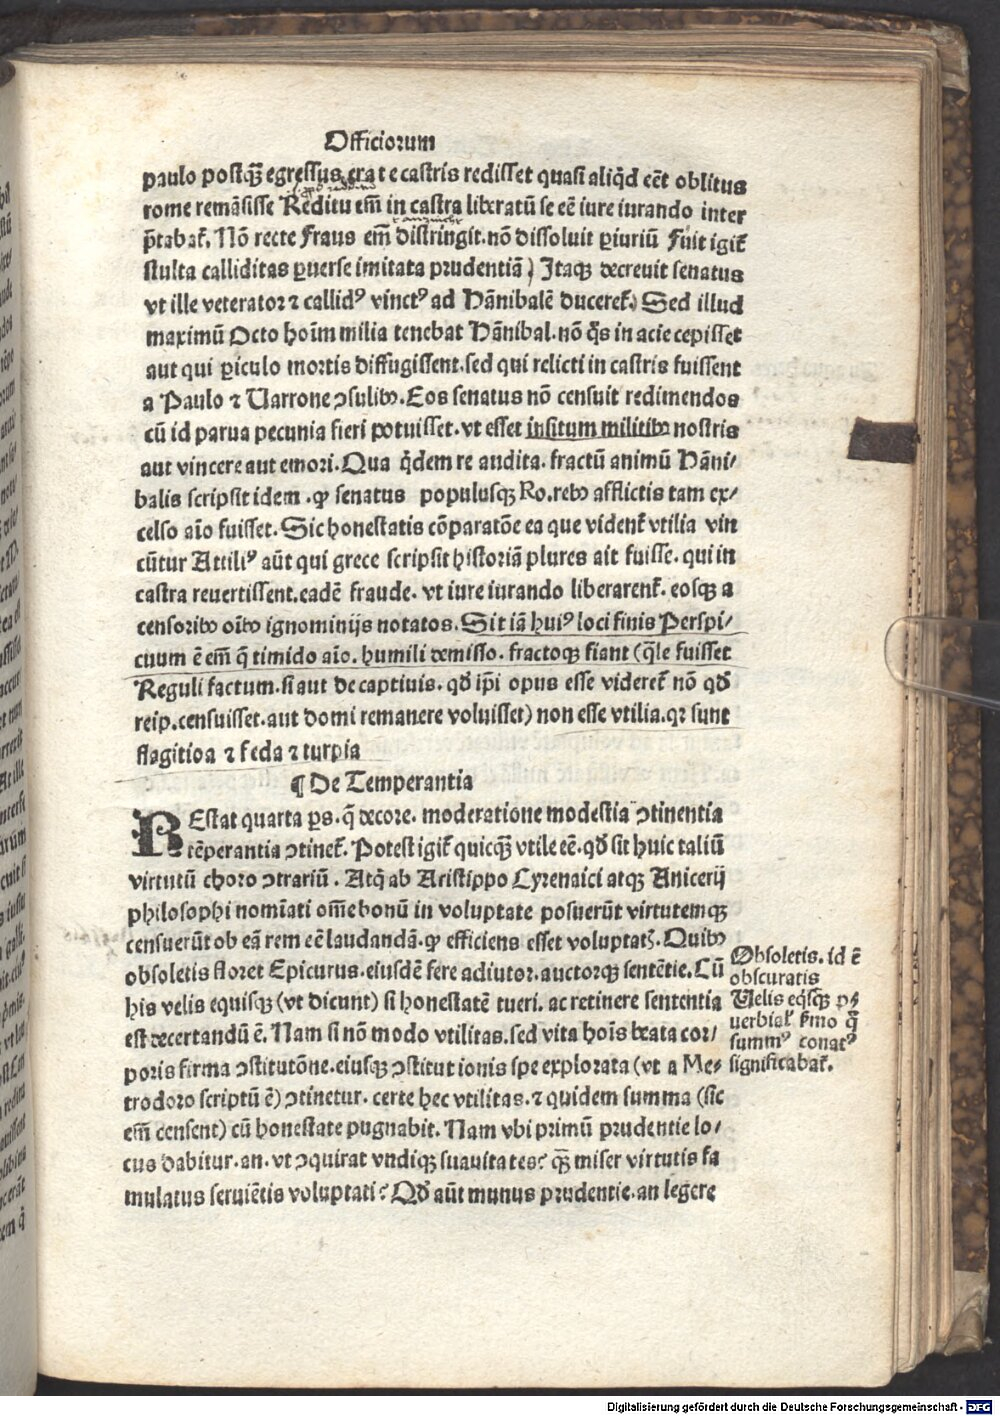 Officiorum
paulo postqꝫ egressus erat e castris redisset quasi aliqͥd eēt oblitus
rome remāsisse Reditu em̄ in castra liberatū se eē iure iurando inter
p̄tabat᷑. Nō recte Fraus em̄ distringit. nō dissoluit ꝑiuriū Fuit igit᷑
stulta calliditas ꝑuerse imitata prudentiā) Itaqꝫ decreuit senatus
vt ille veterator ⁊ callidꝰ vinctꝰ ad Hānibalē duceret᷑.) Sed illud
maximū Octo hoīm milia tenebat Hānibal. nō q̄s in acie cepisset
aut qui ꝑiculo mortis diffugissent. sed qui relicti in castris fuissent
a Paulo ⁊ Varrone ↄsulibꝰ. Eos senatus nō censuit redimendos
cū id parua pecunia fieri potuisset. vt esset insitum militibꝰ nostris
aut vincere aut emori. Qua qͥdem re audita. fractū animū Hāni/
balis scripsit idem. ꝙ senatus populusqꝫ Ro. rebꝰ afflictis tam ex/
celso aīo fuisset. Sic honestatis cōparatōe ea que vident᷑ vtilia vin
cūtur Attiliꝰ aūt qui grece scripsit historiā plures ait fuisse. qui in
castra reuertissent. eadē fraude. vt iure iurando liberarent᷑. eosqꝫ a
censoribꝰ oībꝰ ignominijs notatos. Sit iā huiꝰ loci finis Perspi/
cuum ē em̄ q̄ timido aīo. humili demisso. fractoqꝫ fiant (q̄le fuisset
Reguli factum. si aut de captiuis. qđ ip̄i opus esse videret᷑ nō qđ
reip. censuisset. aut domi remanere voluisset) non esse vtilia. qꝛ sunt
flagitioa ⁊ feda ⁊ turpia
¶ De Temperantia
REstat quarta ꝑs. q̄ decore. moderatione modestia ↄtinentia
tēperantia ↄtinet᷑. Potest igit᷑ quicqꝫ vtile eē. qđ sit huic taliū
virtutū choro ↄtrariū. Atq̄ ab Aristippo Cyrenaici atqꝫ Anicerij
philosophi nomīati om̄e bonū in voluptate posuerūt virtutemqꝫ
censuerūt ob eā rem eē laudandā. ꝙ efficiens esset voluptatꝭ. Quibꝰ
obsoletis floret Epicurus. eiusdē fere adiutor. auctorqꝫ sentētie. Cū
his velis equisqꝫ (vt dicunt) si honestatē tueri. ac retinere sententia
est decertandū ē. Nam si nō modo vtilitas. sed vita hoīs beata cor/
poris firma ↄstitutōne. eiusqꝫ ↄstitutionis spe explorata (vt a Me/
trodoro scriptū ē) ↄtinetur. certe hec vtilitas. ⁊ quidem summa (sic
em̄ censent) cū honestate pugnabit. Nam vbi primū prudentie lo/
cus dabitur. an. vt ↄquirat vndiqꝫ suauitates? qꝫ miser virtutis fa
mulatus seruiētis voluptati? Qđ aūt munus prudentie. an legere
Obsoletis. id ē
obscuratis
Velis eq̄sqꝫ
uerbial᷑ q̄
summꝰ conatꝰ
significabat᷑.
Digitalisierung gefördert durch die Deutsche Forschungsgemeinschaft - DFG